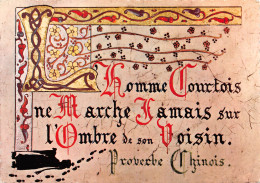 L'Homme Courtois
ne Marche Jamais sur
l'Ombre de son Voisin.
Proverbe Chinois.